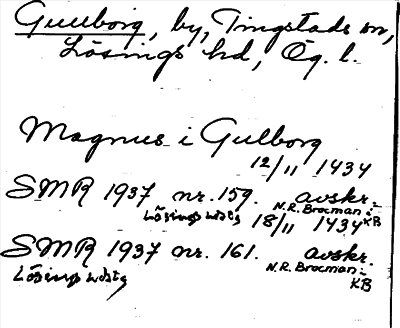 Gullborg, by, Tingstads sn,
Lösings hd, Ög. l.
Magnus i Gulborg
12/11 1434
SMR 1937 nr. 159. avskr.
N.R. Brocman: KB
Lösings hdstg 18/11 1434
SMR 1937 nr. 161. avskr.
N.R. Brocman: KB
Lösings hdstg